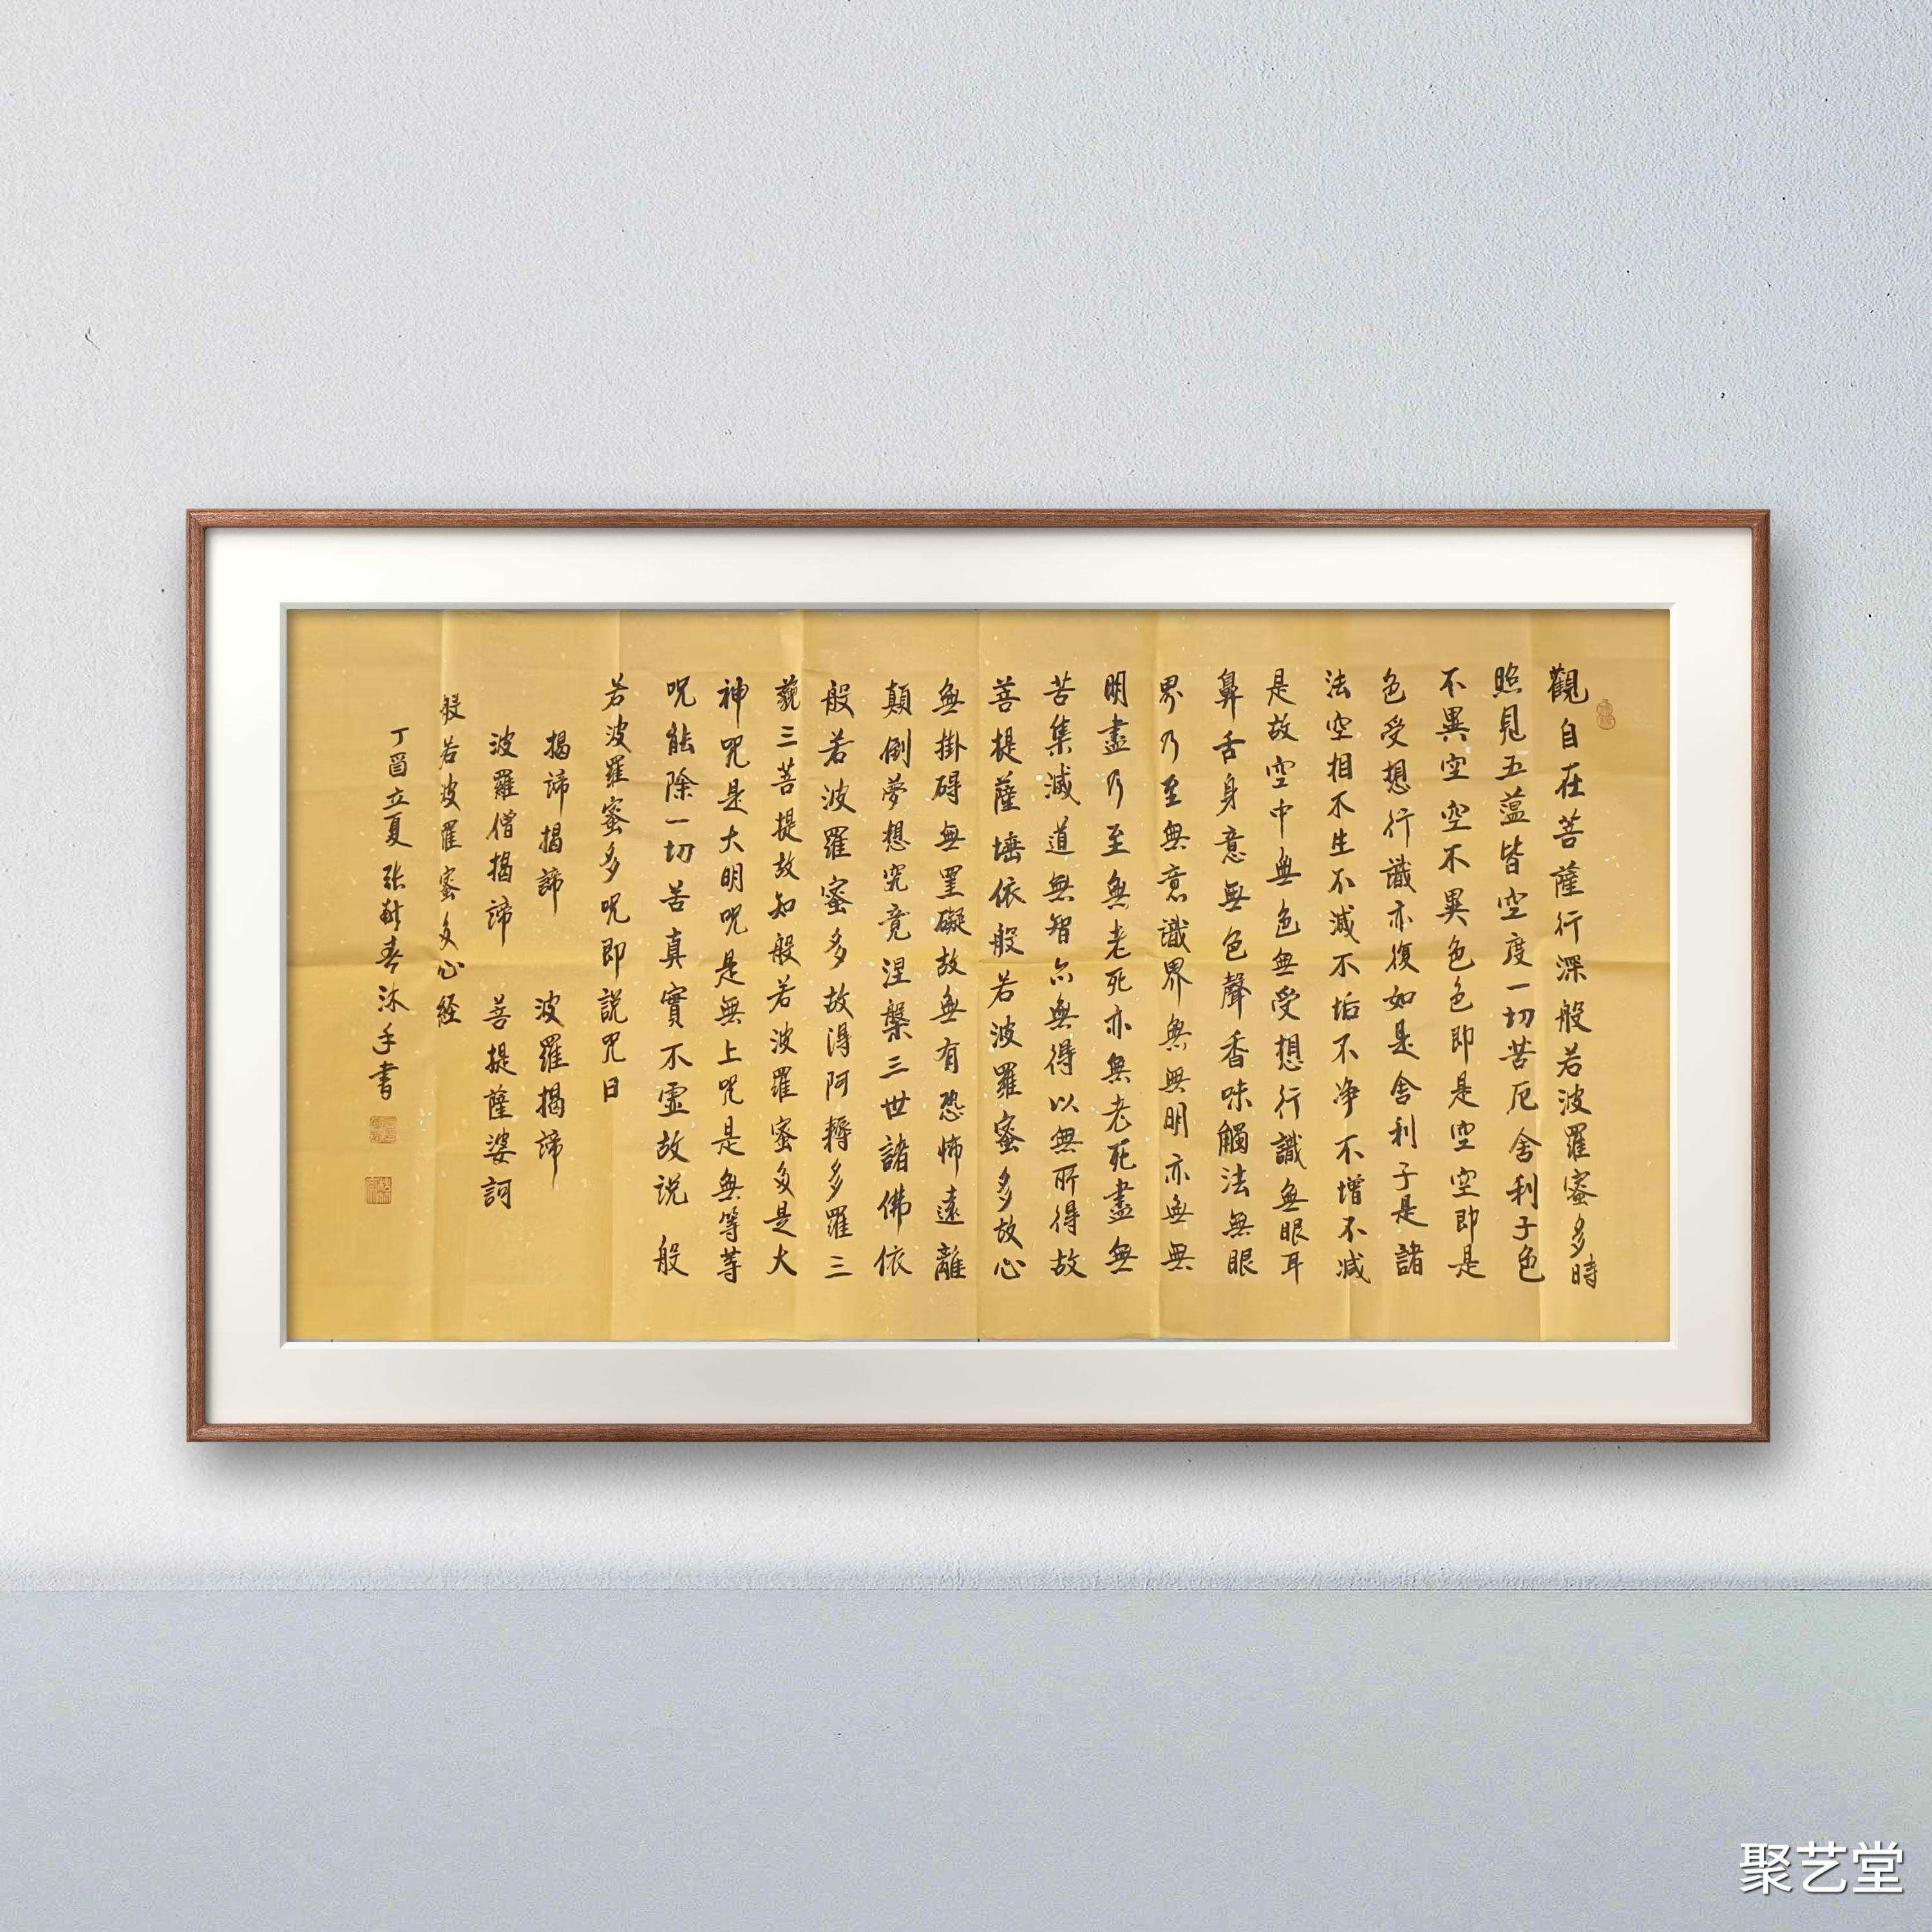 觀自在菩薩行深般若波羅蜜多時
照見五蕰皆空度一切苦厄舍利子色
不異空空不異色色即是空空即是
色受想行識亦復如是舍利子是諸
法空相不生不滅不垢不净不增不减
是故空中無色無受想行識無眼耳
鼻舌身意無色聲香味觸法無眼
界乃至無意識界無無明亦無無
明盡乃至無老死亦無老死盡無
苦集滅道無智亦無得以無所得故
菩提薩埵依般若波羅蜜多故心
無掛碍無罣礙故無有恐怖遠離
顛倒夢想究竟涅槃三世諸佛依
般若波羅蜜多故得阿耨多羅三
藐三菩提故知般若波羅蜜多是大
神咒是大明咒是無上咒是無等等
咒能除一切苦真實不虛故說般
若波羅蜜多咒即說咒曰
揭諦揭諦 波羅揭諦
波羅僧揭諦 菩提薩婆訶
般若波羅蜜多心経
丁酉立夏 张春沐手書
聚艺堂